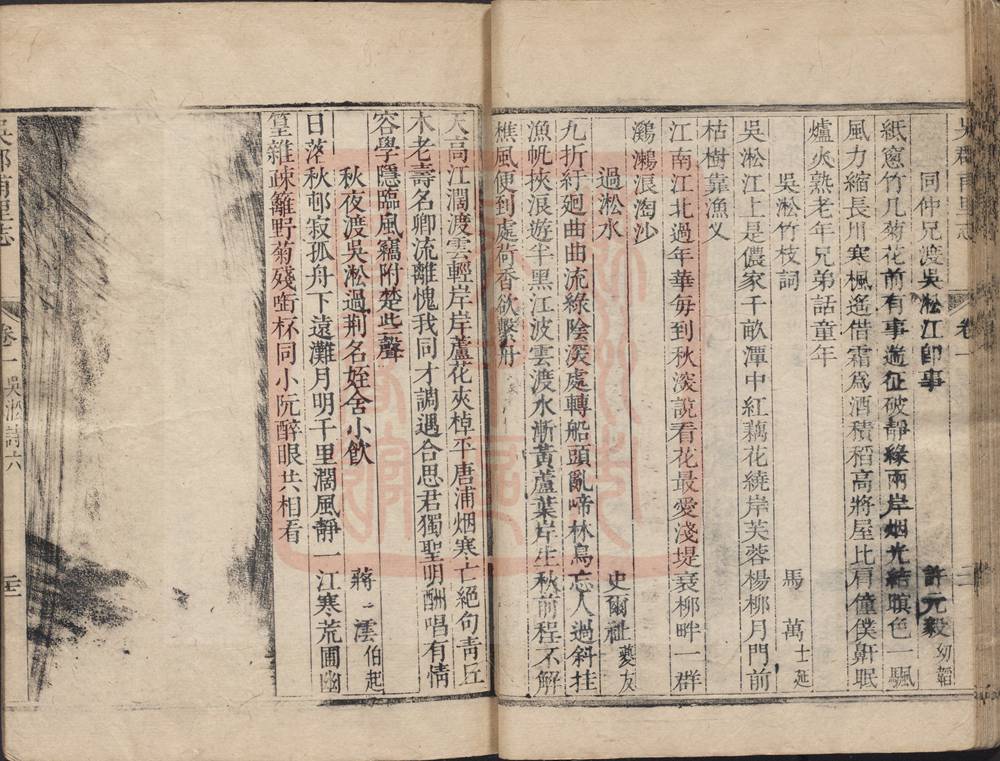 吳郡甫里志 卷一
同仲兄渡吳淞江即事 許元毅幼韜
紙窓竹几菊花前有事遄征破靜緣兩岸烟光結暝色一颿
風力縮長川寒楓遙借霜爲酒積稻高將屋比肩僮僕鼾眠
爐火熟老年兄弟話童年
吳淞竹枝詞 馬萬士延
吳淞江上是儂家千畝潭中紅藕花繞岸芙蓉楊柳月門前
枯樹靠漁义
江南江北過年華每到秋深說看花最愛淺堤衰柳畔一群
鸂鶒浪淘沙
過淞水 史爾祉夔友
九折紆廻曲曲流綠陰深處轉船頭亂啼林鳥忘人過斜挂
漁帆挾浪遊半黑江波雲渡水漸黃蘆葉岸生秋前程不解
樵風便到處荷香欲繫舟
天高江濶渡雲輕岸岸蘆花夾棹平唐浦烟寒亡絕句青丘
木老壽名卿流離愧我同才調遇合思君獨聖明酬唱有情
容學隱臨風竊附楚些聲
秋夜渡吳淞過荆名姪舍小飲 蔣澐伯起
日落秋邨寂孤舟下遠灘月明千里濶風靜一江寒荒圃幽
篁雜疎籬野菊殘啣杯同小阮醉眼共相看
吳郡甫里志 卷一 吳淞詩六